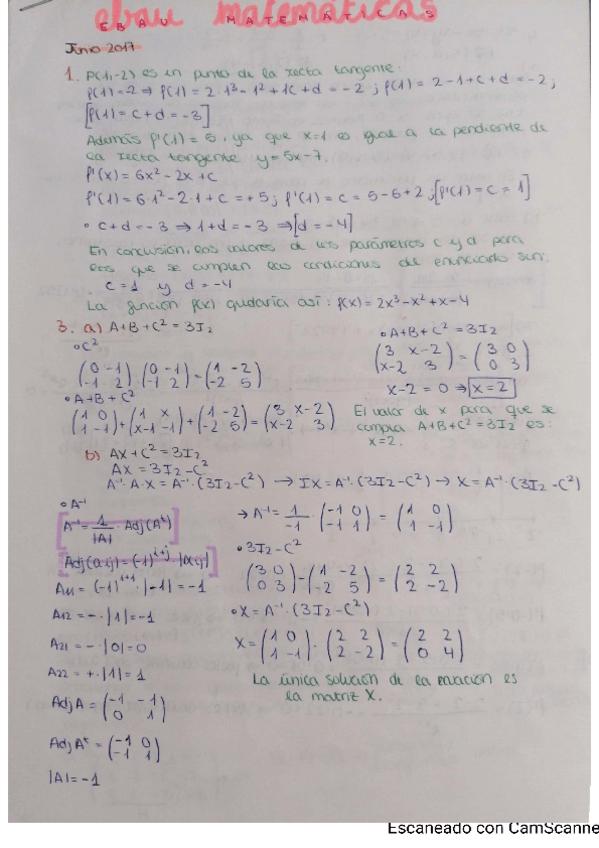 ebau matemáticas
EBAU MATEMÁTICAS
Junio 2017
1. P(1,-2) es un punto de la recta tangente:
f(1)=-2 ⇒ f(1) = 2·1³-1²+1c+d = -2 ; f(1) = 2-1+c+d = -2;
[f(1)= c+d = -3]
Además f'(1) = 5, ya que x=1 es igual a la pendiente de
la recta tangente y=5x-7.
f'(x) = 6x²-2x+c
f'(1) = 6·1²-2·1+c = +5; f'(1) = c = 5-6+2; [f'(1)=c=1]
• c+d = -3 ⇒ 1+d = -3 ⇒ [d=-4]
En conclusión, los valores de los parámetros c y d para
los que se cumplen las condiciones de enunciado son:
c=1 y d=-4
La función f(x) quedaría así: f(x) = 2x³-x²+x-4
3. a) A+B+C² = 3I₂
• C²
(0 -1) · (0 -1) = (1 -2)
(-1 2) (-1 2) (-2 5)
• A+B+C²
(1 0) + (1 x) + (1 -2) = (3 x-2)
(1 -1) (x-1 -1) (-2 5) (x-2 3)
• A+B+C² = 3I₂
(3 x-2) = (3 0)
(x-2 3) (0 3)
x-2 = 0 ⇒ x=2
El valor de x para que se
cumpla A+B+C²=3I₂ es:
x=2.
b) AX+C² = 3I₂
AX = 3I₂-C²
A⁻¹·A·X = A⁻¹·(3I₂-C²) → IX = A⁻¹·(3I₂-C²) → X = A⁻¹·(3I₂-C²)
• A⁻¹
A⁻¹ = 1/|A| · Adj(Aᵗ)
Adj(aij) = (-1)ⁱ⁺ʲ |xij|
A11 = (-1)¹⁺¹·|-1| = -1
A12 = -·|1| = -1
A21 = -·|0| = 0
A22 = +·|1| = 1
Adj A = (-1 -1)
(0 1)
Adj Aᵗ = (-1 0)
(-1 1)
|A| = -1
→ A⁻¹ = 1/-1 · (-1 0) = (1 0)
(-1 1) (1 -1)
• 3I₂-C²
(3 0) - (1 -2) = (2 2)
(0 3) (-2 5) (2 -2)
• X = A⁻¹·(3I₂-C²)
X = (1 0) · (2 2) = (2 2)
(1 -1) (2 -2) (0 4)
La única solución de la ecuación es
la matriz X.
Escaneado con CamScanne